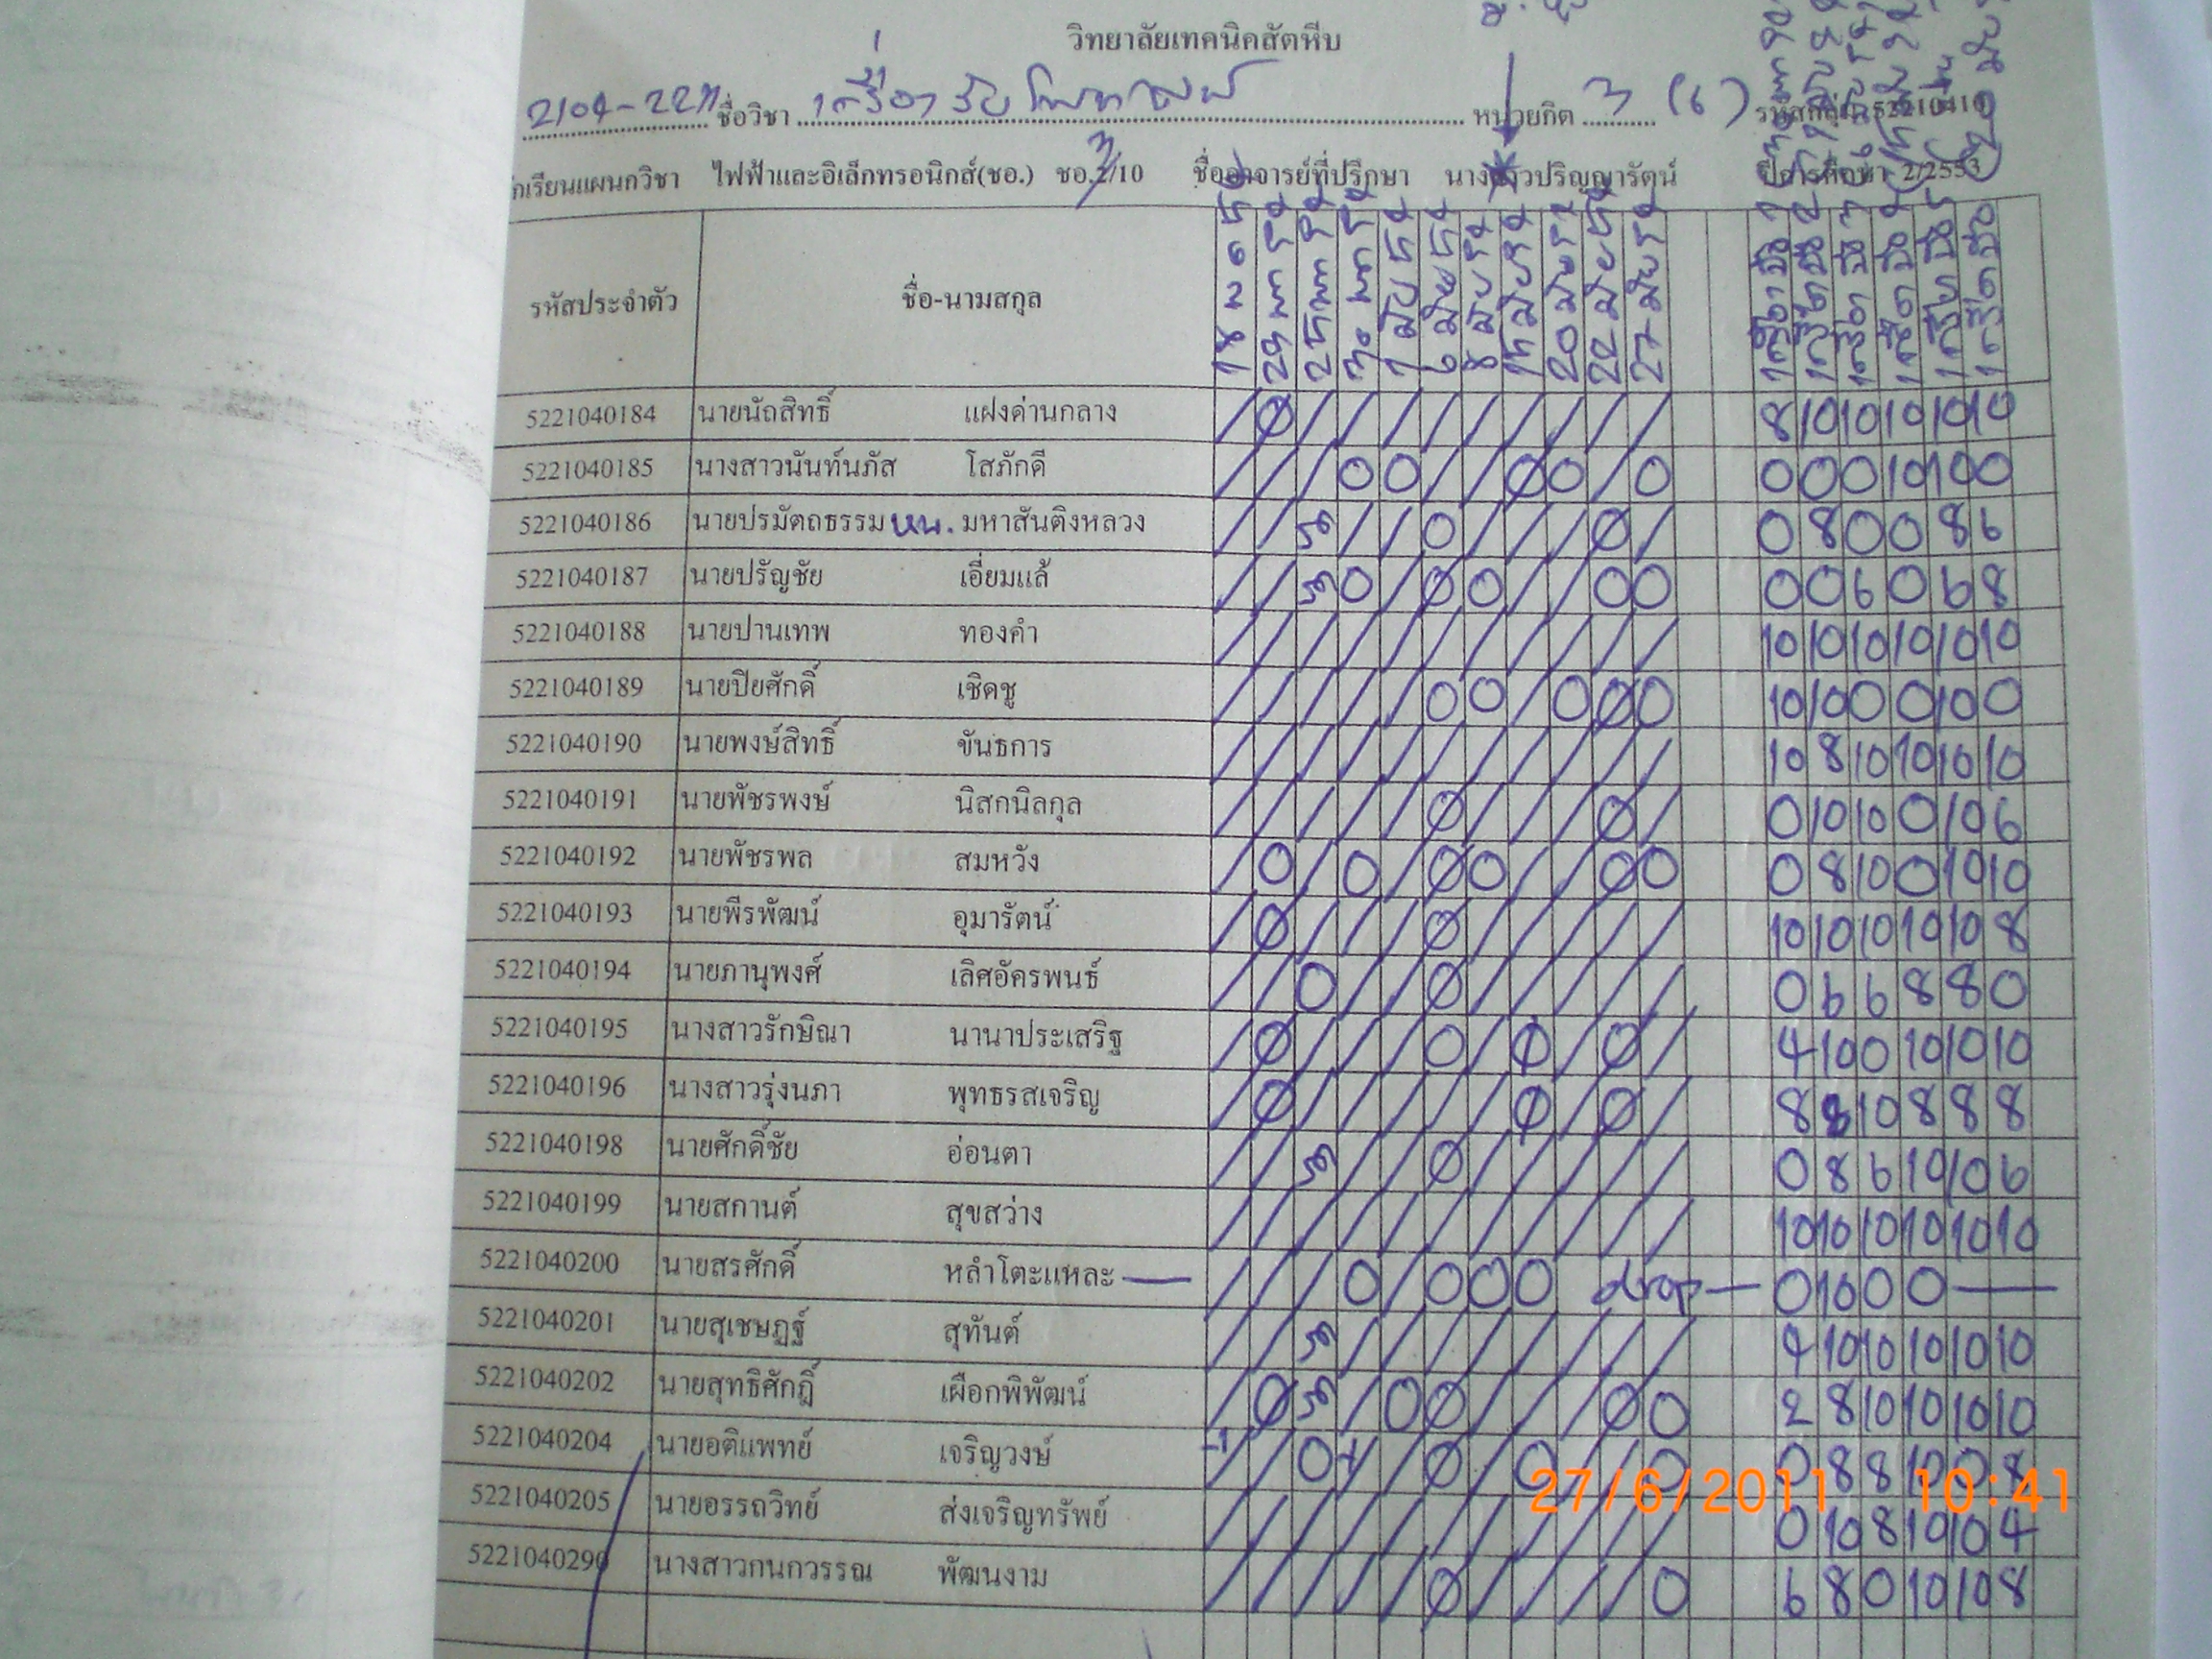 วิทยาลัยเทคนิคสัตหีบ
2104-2211 ชื่อวิชา เครื่องรับโทรทัศน์ หน่วยกิต 3 (6) รหัสกลุ่ม 52210410
นักเรียนแผนกวิชา ไฟฟ้าและอิเล็กทรอนิกส์(ชอ.) ชอ. 3/10 ชื่ออาจารย์ที่ปรึกษา นางสาวปริญญารัตน์ ปีการศึกษา 2/2553
รหัสประจำตัว ชื่อ-นามสกุล
5221040184 นายนัถสิทธิ์ แฝงด่านกลาง / Ø / / / / / / / / / 8 10 10 10 10 10
5221040185 นางสาวนันท์นภัส โสภักดี / / / 0 0 / / Ø 0 / 0 0 0 0 10 10 0
5221040186 นายปรมัตถธรรม หน. มหาสันติงหลวง / / / / 0 / / / Ø / 0 8 0 0 8 6
5221040187 นายปรัญชัย เอี่ยมแล้ / / 0 / Ø 0 / / 0 0 0 0 6 0 6 8
5221040188 นายปานเทพ ทองคำ / / / / / / / / / / / 10 10 10 10 10 10
5221040189 นายปิยศักดิ์ เชิดชู / / / / / 0 0 / 0 Ø 0 10 10 0 0 10 0
5221040190 นายพงษ์สิทธิ์ ขันธการ / / / / / / / / / / / 10 8 10 10 10 10
5221040191 นายพัชรพงษ์ นิสกนิลกุล / / / / / Ø / / / Ø / 0 10 10 0 10 6
5221040192 นายพัชรพล สมหวัง / 0 / 0 / Ø 0 / / Ø 0 0 8 10 0 10 10
5221040193 นายพีรพัฒน์ อุมารัตน์ / Ø / / / Ø / / / / / 10 10 10 10 10 8
5221040194 นายภานุพงศ์ เลิศอัครพนธ์ / / 0 / / Ø / / / / / 0 6 6 8 8 0
5221040195 นางสาวรักษิณา นานาประเสริฐ / Ø / / / 0 / Ø / Ø / 4 10 0 10 10 10
5221040196 นางสาวรุ่งนภา พุทธรสเจริญ / Ø / / / / / Ø / Ø / 8 8 10 8 8 8
5221040198 นายศักดิ์ชัย อ่อนตา / / / / Ø / / / / / 0 8 6 10 10 6
5221040199 นายสกานต์ สุขสว่าง / / / / / / / / / / / 10 10 10 10 10 10
5221040200 นายสรศักดิ์ หลำโตะแหละ — / / / 0 / 0 0 0 drop — 0 10 0 0 —
5221040201 นายสุเชษฎฐ์ สุทันต์ / / / / / / / / / / 4 10 10 10 10 10
5221040202 นายสุทธิศักฎิ์ เผือกพิพัฒน์ / Ø / 0 Ø / / / Ø 0 2 8 10 10 10 10
5221040204 นายอติแพทย์ เจริญวงษ์ / / 0 / / Ø / 0 / / 0 0 8 8 10 0 8
27/6/2011 10:41
5221040205 นายอรรถวิทย์ ส่งเจริญทรัพย์ / / / / / / / / / / / 0 10 8 10 10 4
5221040290 นางสาวกนกวรรณ พัฒนงาม / / / / / Ø / / / / 0 6 8 0 10 10 8